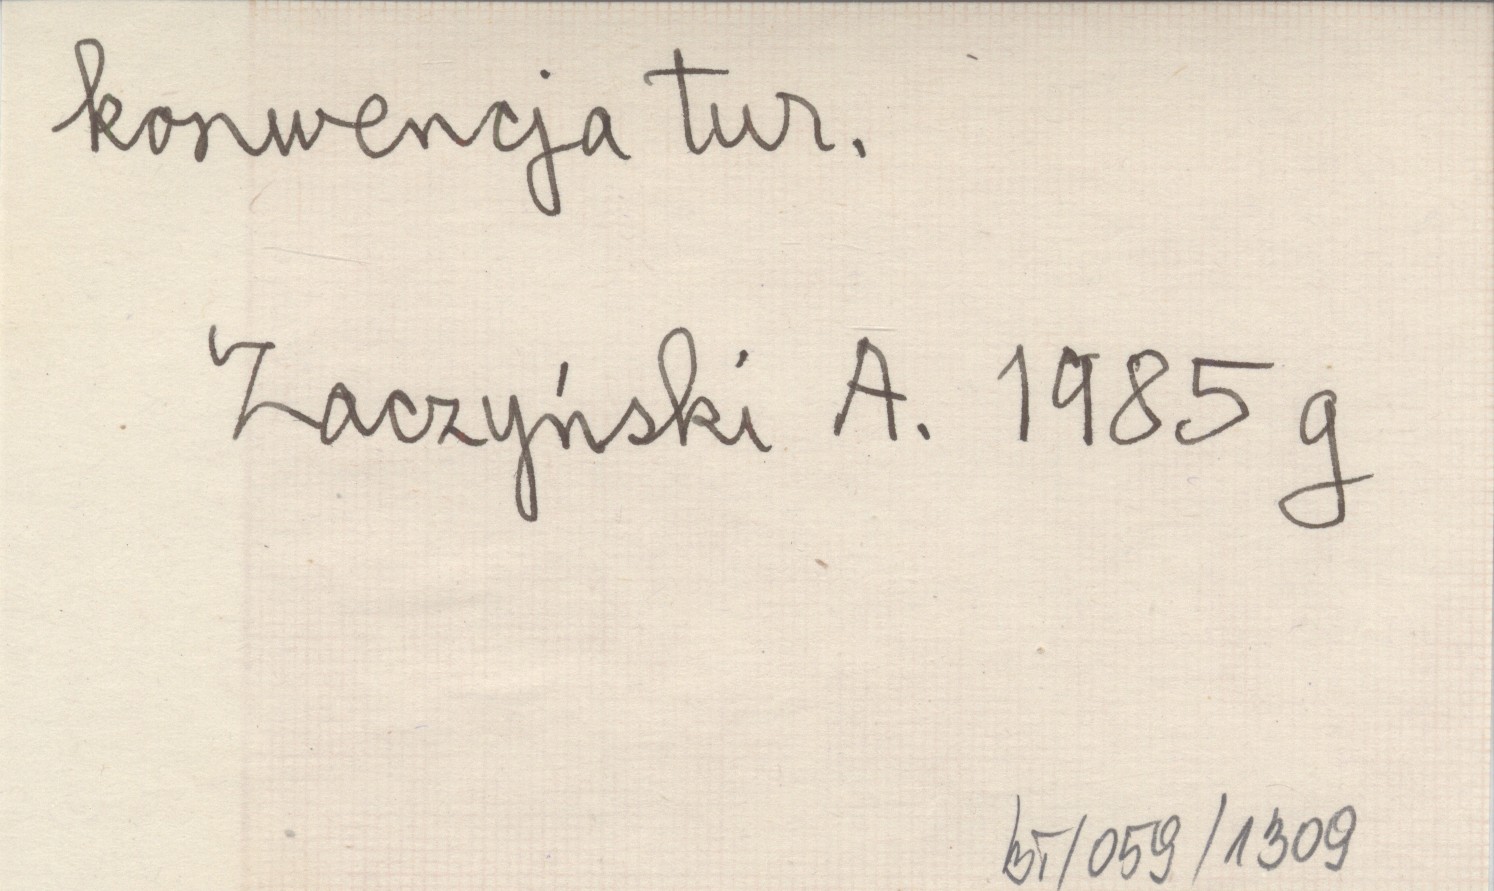 konwencja tur.
Zaczyński A. 1985 g
/059/1309